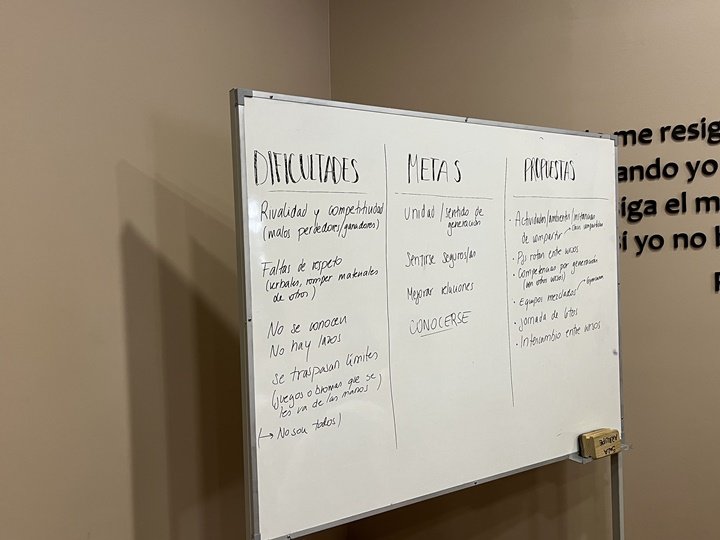 DIFICULTADES
Rivalidad y competitividad
(malos perdedores/ganadores)
Faltas de respeto
(verbales, romper materiales
de otros)
No se conocen
No hay lazos
Se traspasan límites
(juegos o bromas que se
les va de las manos)
↳ No son todos)
METAS
Unidad / sentido de
generación
Sentirse seguros/as
Mejorar relaciones
CONOCERSE
PROPUESTAS
• Actividades/ambientes/instancias
de compartir
• Pjs rotan entre cursos
• Competencias por generación
(con otros cursos)
• Equipos mezclados
• Jornada de 6tos
• Intercambio entre cursos
SALA
me resig
ando yo
siga el m
si yo no b